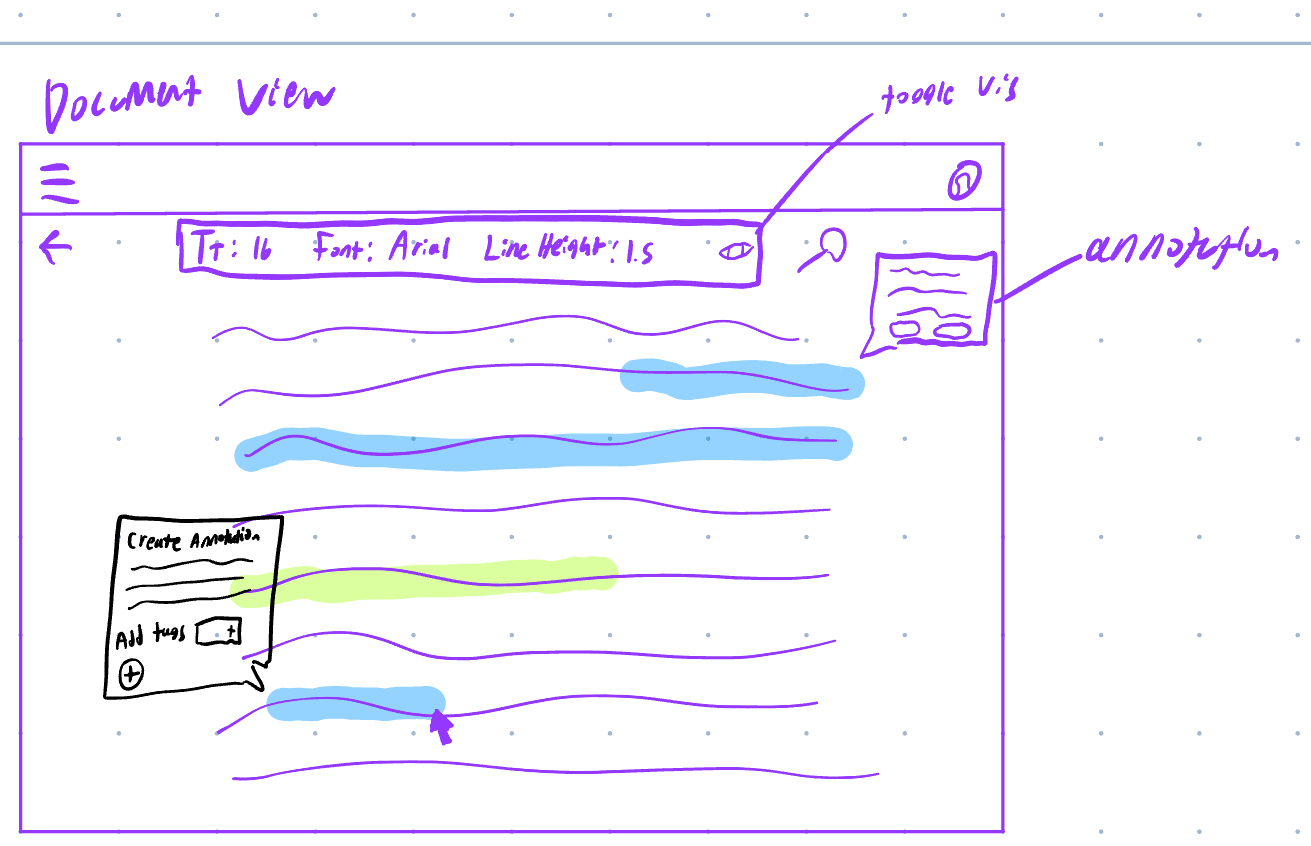 Document View
toggle vis
Tt: 16 Font: Arial Line Height: 1.5
annotation
Create Annotation
Add tags +
+